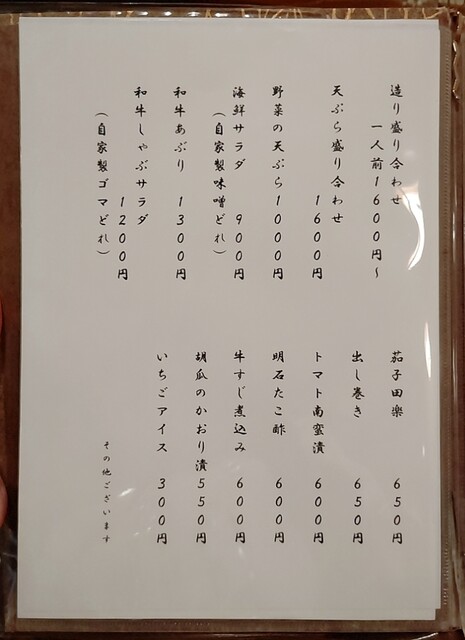 造り盛り合わせ
一人前1600円~
天ぷら盛り合わせ
1600円
野菜の天ぷら1000円
海鮮サラダ 900円
(自家製味噌どれ)
和牛あぶり 1300円
和牛しゃぶサラダ
1200円
(自家製ゴマどれ)
茄子田楽 650円
出し巻き 650円
トマト南蛮漬 600円
明石たこ酢 600円
牛すじ煮込み 600円
胡瓜のかおり漬 550円
いちごアイス 300円
その他ございます